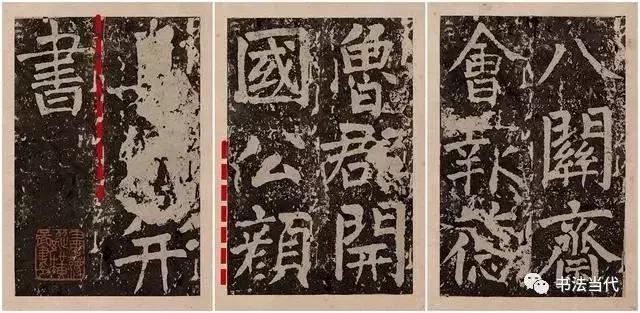 八關齋
會報德
魯郡開
國公顏
并
書
书法当代